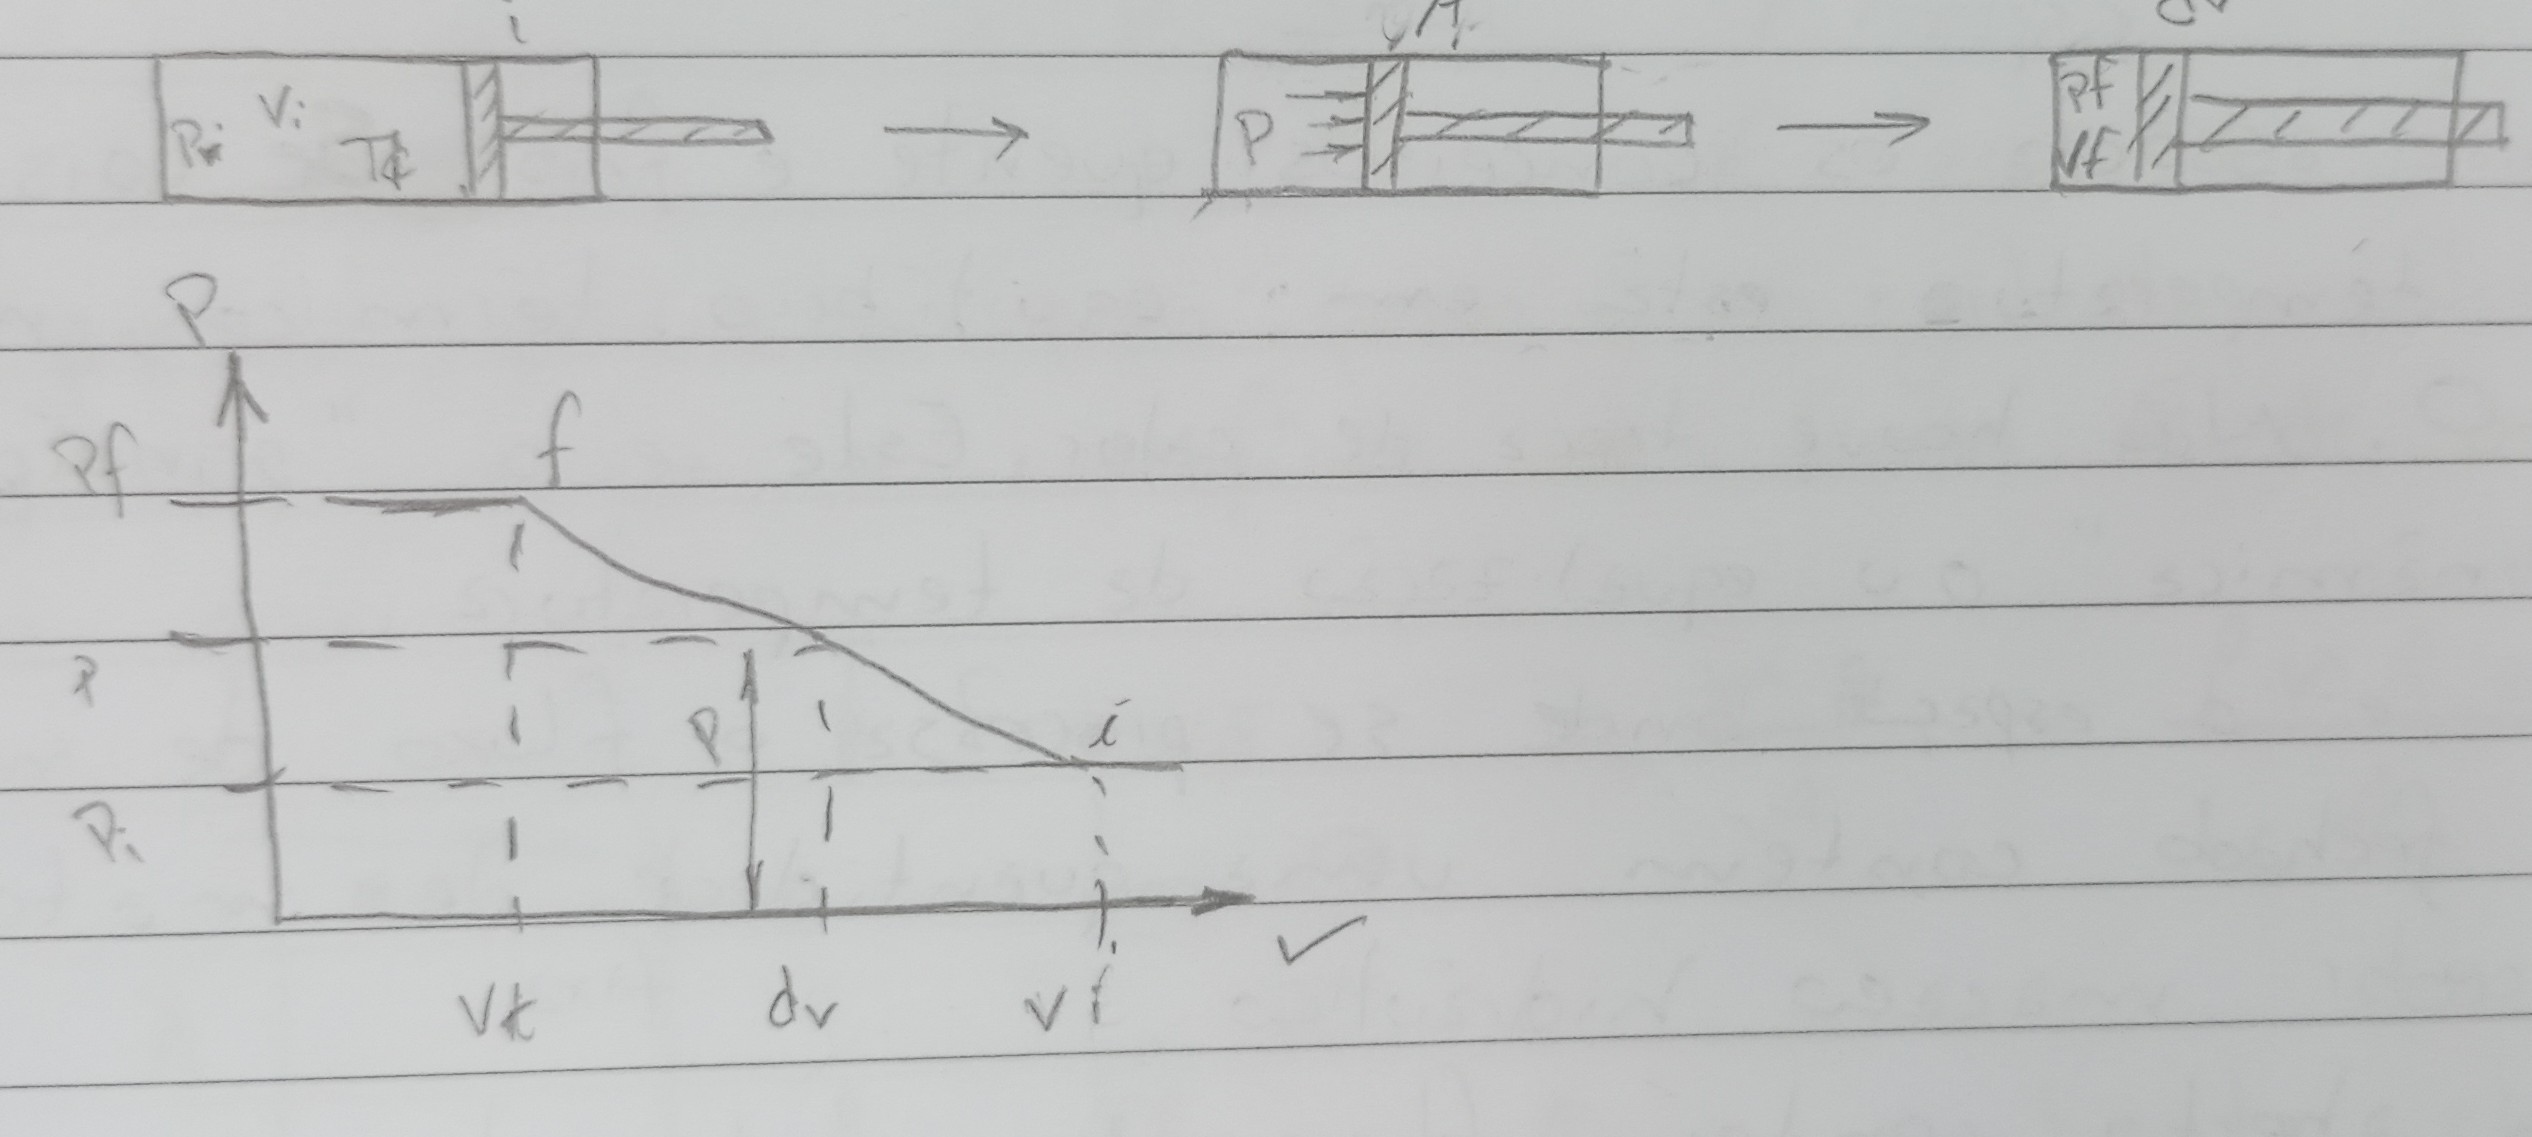 i
Pi Vi
P
Pf
Vf
P
Pf f
P
P i
Pi
V
dv Vi